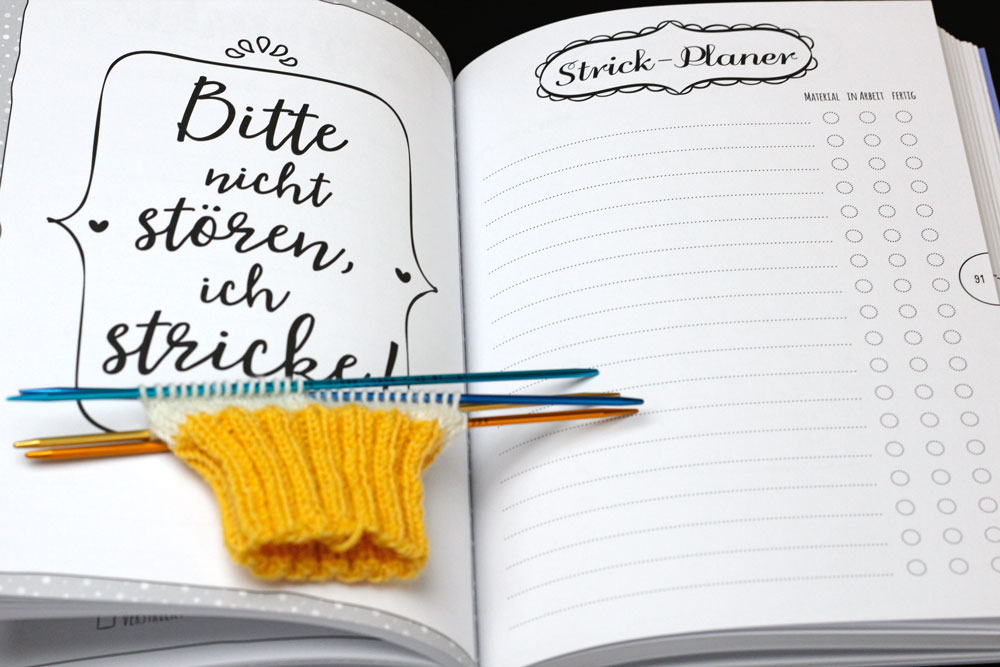 Bitte
nicht
stören,
ich
stricke!
Strick-Planer
MATERIAL IN ARBEIT FERTIG
91